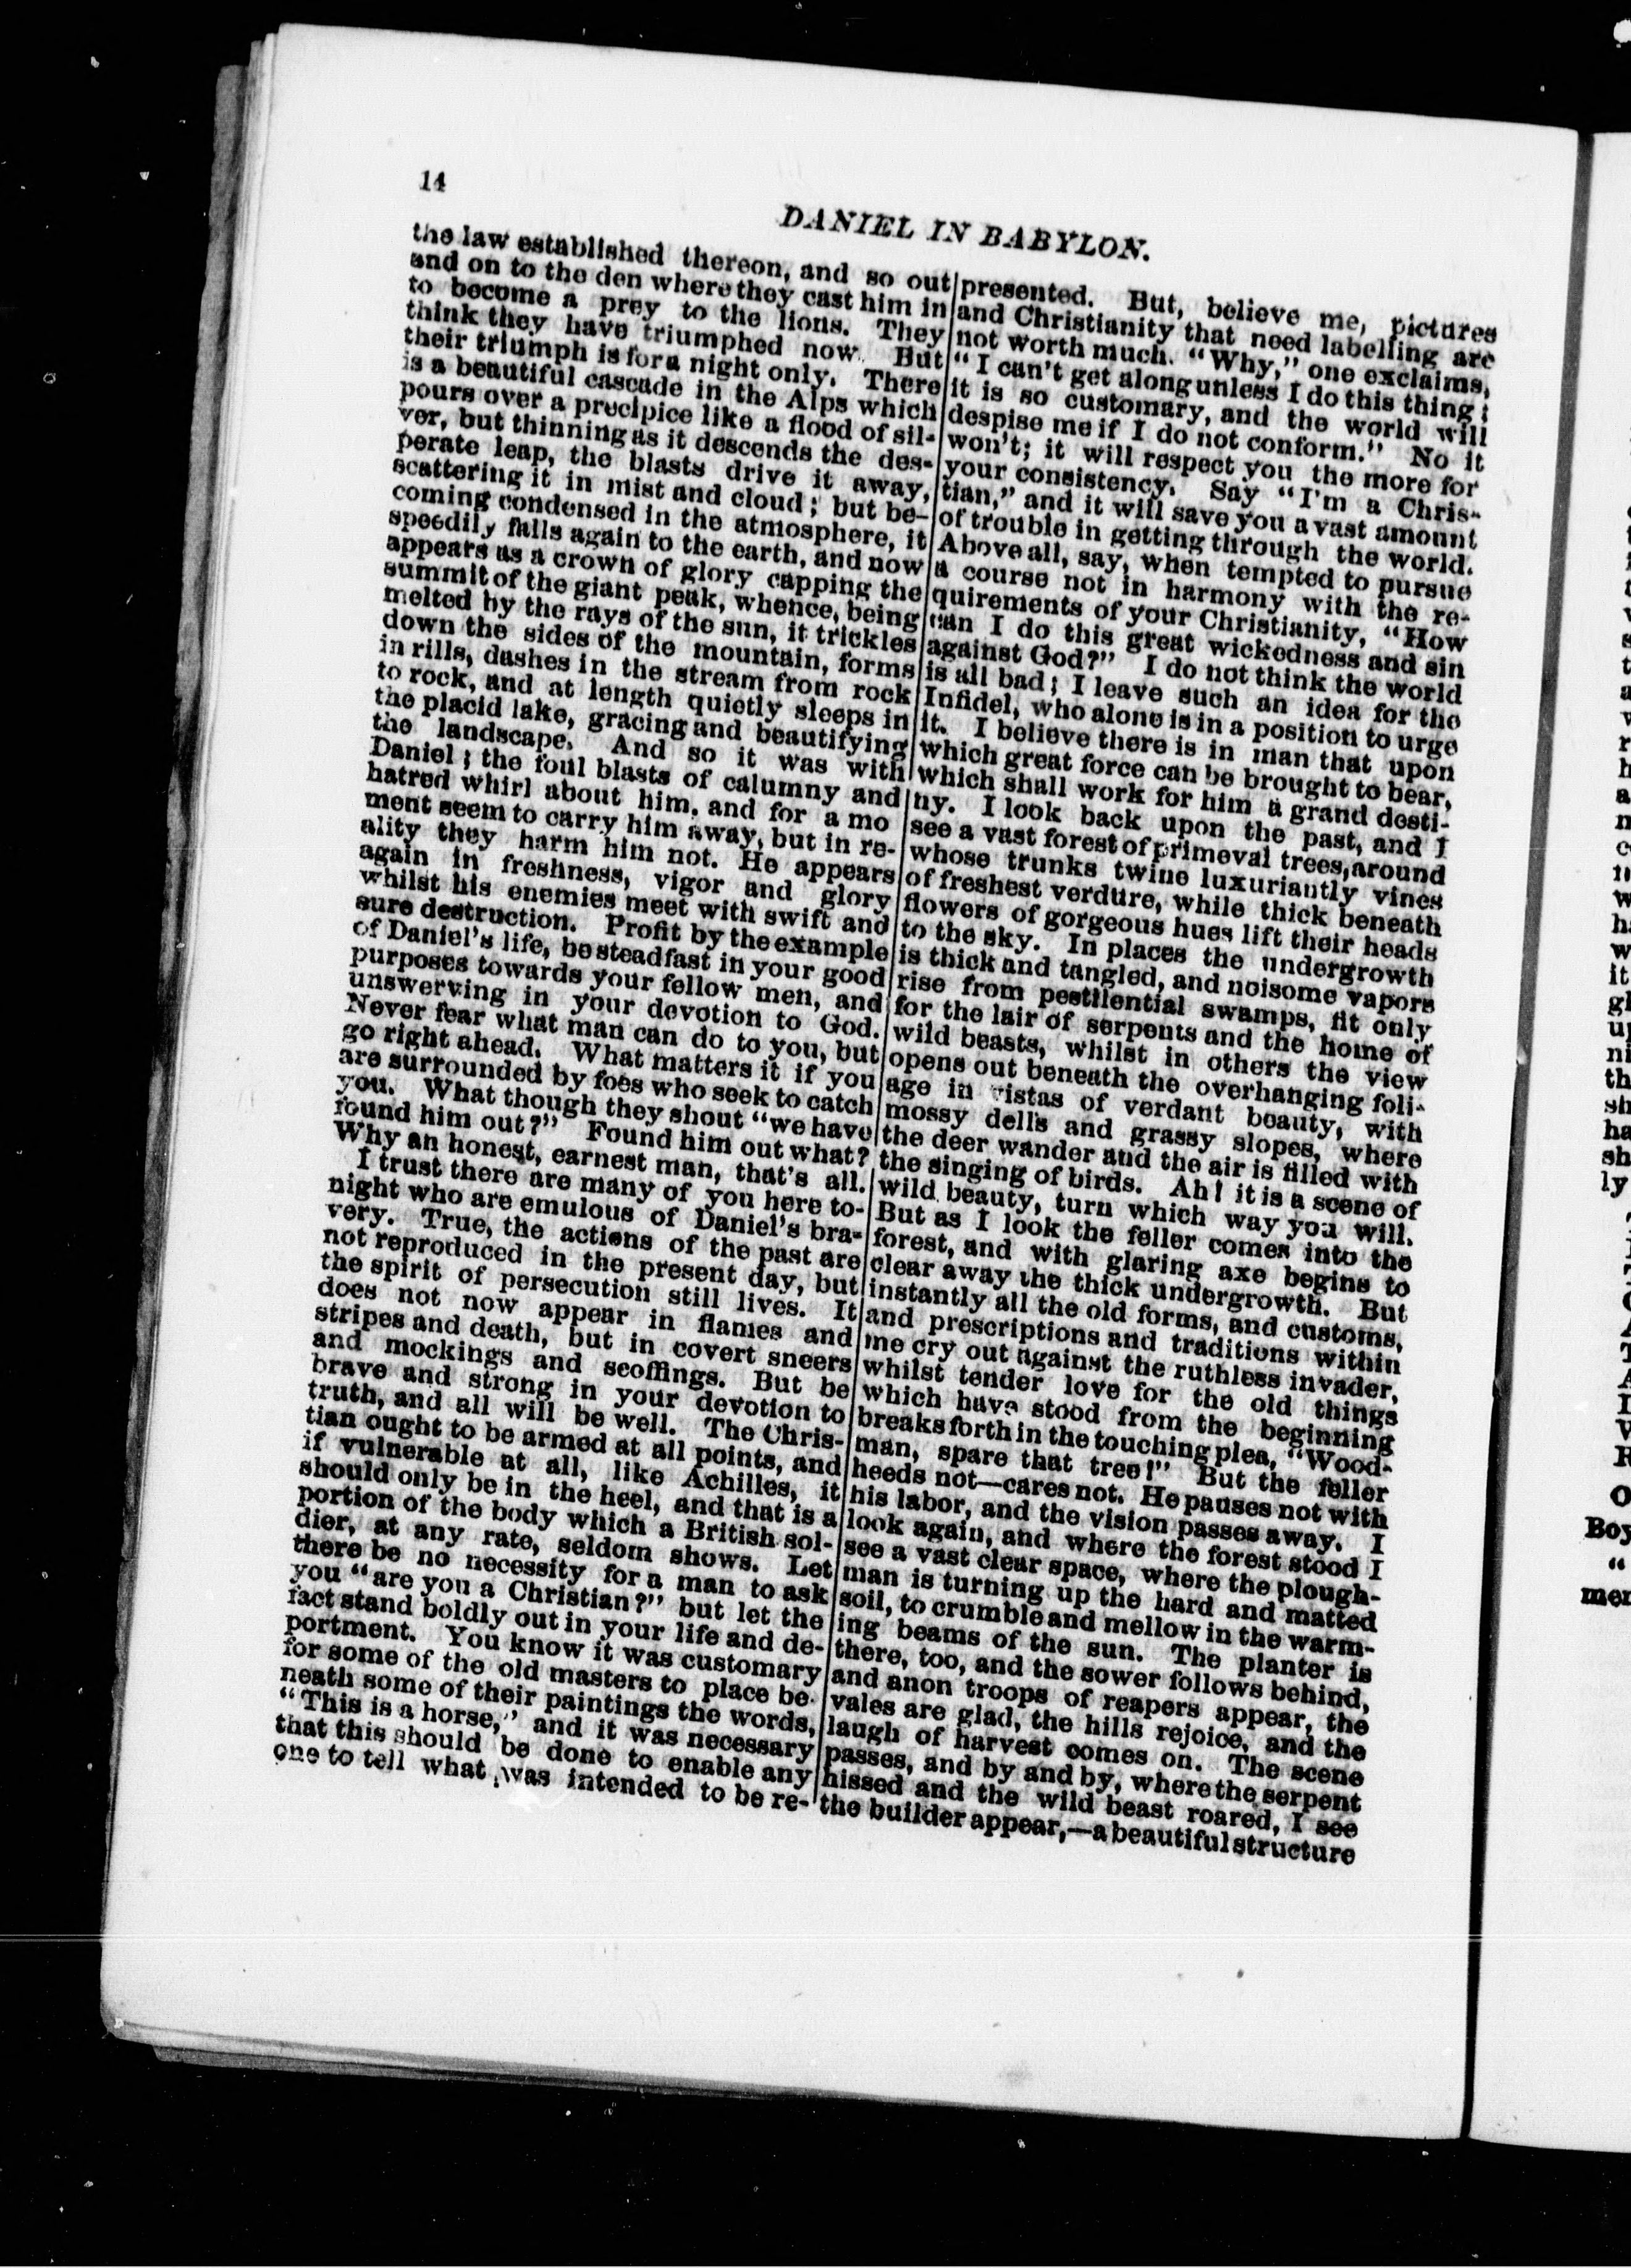 14
DANIEL IN BABYLON.
the law established thereon, and so out
and on to the den where they cast him in
to become a prey to the lions. They
think they have triumphed now. But
their triumph is for a night only. There
is a beautiful cascade in the Alps which
pours over a precipice like a flood of sil-
ver, but thinning as it descends the des-
perate leap, the blasts drive it away,
scattering it in mist and cloud; but be-
coming condensed in the atmosphere, it
speedily falls again to the earth, and now
appears as a crown of glory capping the
summit of the giant peak, whence, being
melted by the rays of the sun, it trickles
down the sides of the mountain, forms
in rills, dashes in the stream from rock
to rock, and at length quietly sleeps in
the placid lake, gracing and beautifying
the landscape. And so it was with
Daniel; the foul blasts of calumny and
hatred whirl about him, and for a mo
ment seem to carry him away, but in re-
ality they harm him not. He appears
again in freshness, vigor and glory
whilst his enemies meet with swift and
sure destruction. Profit by the example
of Daniel's life, be steadfast in your good
purposes towards your fellow men, and
unswerving in your devotion to God.
Never fear what man can do to you, but
go right ahead. What matters it if you
are surrounded by foes who seek to catch
you. What though they shout "we have
found him out?" Found him out what?
Why an honest, earnest man, that's all.
I trust there are many of you here to-
night who are emulous of Daniel's bra-
very. True, the actions of the past are
not reproduced in the present day, but
the spirit of persecution still lives. It
does not now appear in flames and
stripes and death, but in covert sneers
and mockings and scoffings. But be
brave and strong in your devotion to
truth, and all will be well. The Chris-
tian ought to be armed at all points, and
if vulnerable at all, like Achilles, it
should only be in the heel, and that is a
portion of the body which a British sol-
dier, at any rate, seldom shows. Let
there be no necessity for a man to ask
you "are you a Christian?" but let the
fact stand boldly out in your life and de-
portment. You know it was customary
for some of the old masters to place be-
neath some of their paintings the words,
"This is a horse," and it was necessary
that this should be done to enable any
one to tell what was intended to be re-
presented. But, believe me, pictures
and Christianity that need labelling are
not worth much. "Why," one exclaims,
"I can't get along unless I do this thing;
it is so customary, and the world will
despise me if I do not conform." No it
won't; it will respect you the more for
your consistency. Say "I'm a Chris-
tian," and it will save you a vast amount
of trouble in getting through the world.
Above all, say, when tempted to pursue
a course not in harmony with the re-
quirements of your Christianity, "How
can I do this great wickedness and sin
against God?" I do not think the world
is all bad; I leave such an idea for the
Infidel, who alone is in a position to urge
it. I believe there is in man that upon
which great force can be brought to bear,
which shall work for him a grand desti-
ny. I look back upon the past, and I
see a vast forest of primeval trees, around
whose trunks twine luxuriantly vines
of freshest verdure, while thick beneath
flowers of gorgeous hues lift their heads
to the sky. In places the undergrowth
is thick and tangled, and noisome vapors
rise from pestilential swamps, fit only
for the lair of serpents and the home of
wild beasts, whilst in others the view
opens out beneath the overhanging foli-
age in vistas of verdant beauty, with
mossy dells and grassy slopes, where
the deer wander and the air is filled with
the singing of birds. Ah! it is a scene of
wild beauty, turn which way you will.
But as I look the feller comes into the
forest, and with glaring axe begins to
clear away the thick undergrowth. But
instantly all the old forms, and customs,
and prescriptions and traditions within
me cry out against the ruthless invader,
whilst tender love for the old things
which have stood from the beginning
breaks forth in the touching plea, "Wood-
man, spare that tree!" But the feller
heeds not—cares not. He pauses not with
his labor, and the vision passes away. I
look again, and where the forest stood I
see a vast clear space, where the plough-
man is turning up the hard and matted
soil, to crumble and mellow in the warm-
ing beams of the sun. The planter is
there, too, and the sower follows behind,
and anon troops of reapers appear, the
vales are glad, the hills rejoice, and the
laugh of harvest comes on. The scene
passes, and by and by, where the serpent
hissed and the wild beast roared, I see
the builder appear,—a beautiful structure